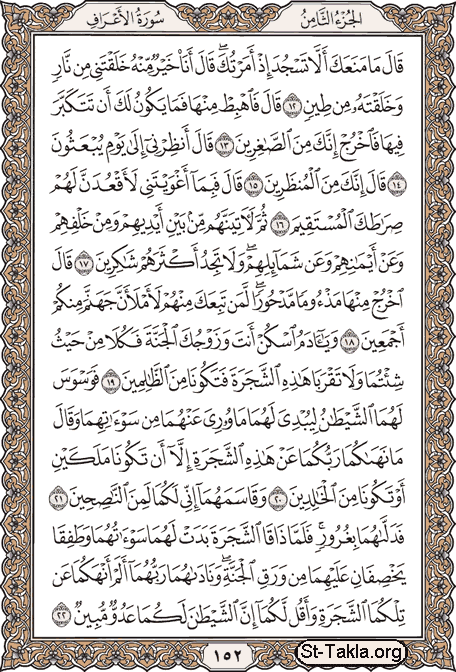 الجزء الثامن
سورة الأعراف
قَالَ مَا مَنَعَكَ أَلَّا تَسْجُدَ إِذْ أَمَرْتُكَ ۖ قَالَ أَنَا۠ خَيْرٌ مِّنْهُ خَلَقْتَنِى مِن نَّارٍ
وَخَلَقْتَهُۥ مِن طِينٍ ١٢ قَالَ فَٱهْبِطْ مِنْهَا فَمَا يَكُونُ لَكَ أَن تَتَكَبَّرَ
فِيهَا فَٱخْرُجْ إِنَّكَ مِنَ ٱلصَّٰغِرِينَ ١٣ قَالَ أَنظِرْنِىٓ إِلَىٰ يَوْمِ يُبْعَثُونَ
١٤ قَالَ إِنَّكَ مِنَ ٱلْمُنظَرِينَ ١٥ قَالَ فَبِمَآ أَغْوَيْتَنِى لَأَقْعُدَنَّ لَهُمْ
صِرَٰطَكَ ٱلْمُسْتَقِيمَ ١٦ ثُمَّ لَءَاتِيَنَّهُم مِّنۢ بَيْنِ أَيْدِيهِمْ وَمِنْ خَلْفِهِمْ
وَعَنْ أَيْمَٰنِهِمْ وَعَن شَمَآئِلِهِمْ ۖ وَلَا تَجِدُ أَكْثَرَهُمْ شَٰكِرِينَ ١٧ قَالَ
ٱخْرُجْ مِنْهَا مَذْءُومًا مَّدْحُورًا ۖ لَّمَن تَبِعَكَ مِنْهُمْ لَأَمْلَأَنَّ جَهَنَّمَ مِنكُمْ
أَجْمَعِينَ ١٨ وَيَٰٓـَٔادَمُ ٱسْكُنْ أَنتَ وَزَوْجُكَ ٱلْجَنَّةَ فَكُلَا مِنْ حَيْثُ
شِئْتُمَا وَلَا تَقْرَبَا هَٰذِهِ ٱلشَّجَرَةَ فَتَكُونَا مِنَ ٱلظَّٰلِمِينَ ١٩ فَوَسْوَسَ
لَهُمَا ٱلشَّيْطَٰنُ لِيُبْدِىَ لَهُمَا مَا وُۥرِىَ عَنْهُمَا مِن سَوْءَٰتِهِمَا وَقَالَ
مَا نَهَىٰكُمَا رَبُّكُمَا عَنْ هَٰذِهِ ٱلشَّجَرَةِ إِلَّآ أَن تَكُونَا مَلَكَيْنِ
أَوْ تَكُونَا مِنَ ٱلْخَٰلِدِينَ ٢٠ وَقَاسَمَهُمَآ إِنِّى لَكُمَا لَمِنَ ٱلنَّٰصِحِينَ ٢١
فَدَلَّىٰهُمَا بِغُرُورٍ ۚ فَلَمَّا ذَاقَا ٱلشَّجَرَةَ بَدَتْ لَهُمَا سَوْءَٰتُهُمَا وَطَفِقَا
يَخْصِفَانِ عَلَيْهِمَا مِن وَرَقِ ٱلْجَنَّةِ ۖ وَنَادَىٰهُمَا رَبُّهُمَآ أَلَمْ أَنْهَكُمَا عَن
تِلْكُمَا ٱلشَّجَرَةِ وَأَقُل لَّكُمَآ إِنَّ ٱلشَّيْطَٰنَ لَكُمَا عَدُوٌّ مُّبِينٌ ٢٢
١٥٢
St-Takla.org